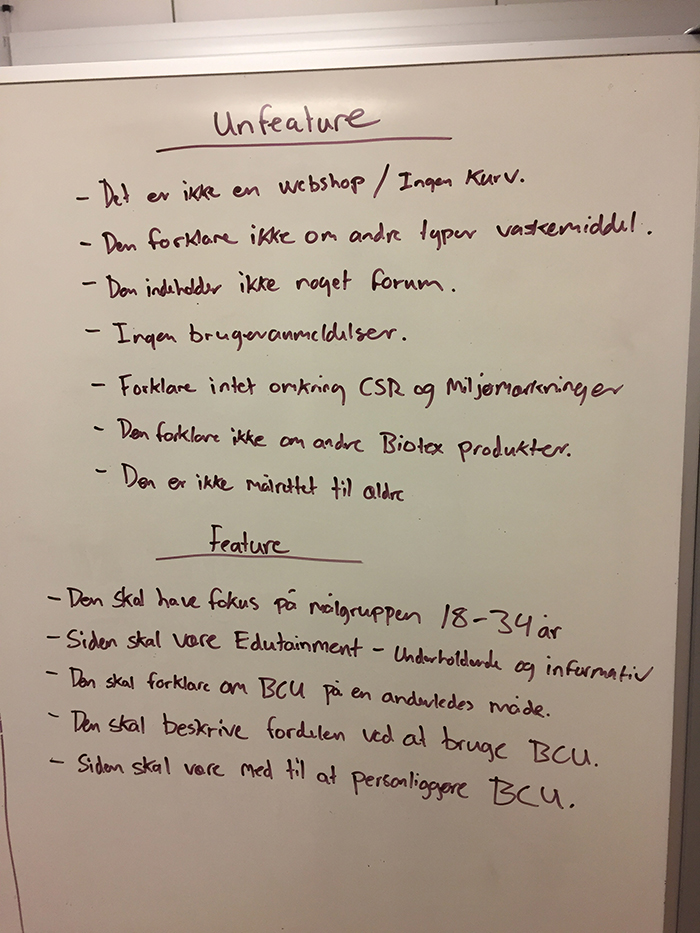 Unfeature
- Det er ikke en webshop / Ingen kurv.
- Den forklare ikke om andre typer vaskemiddel.
- Den indeholder ikke noget forum.
- Ingen brugeranmeldelser.
- Forklare intet omkring CSR og Miljømærkninger
- Den forklare ikke om andre Biotex produkter.
- Den er ikke målrettet til ældre
Feature
- Den skal have fokus på målgruppen 18-34 år
- Siden skal være Edutainment - Underholdende og informativ
- Den skal forklare om BCU på en anderledes måde.
- Den skal beskrive fordelen ved at bruge BCU.
- Siden skal være med til at personliggøre BCU.